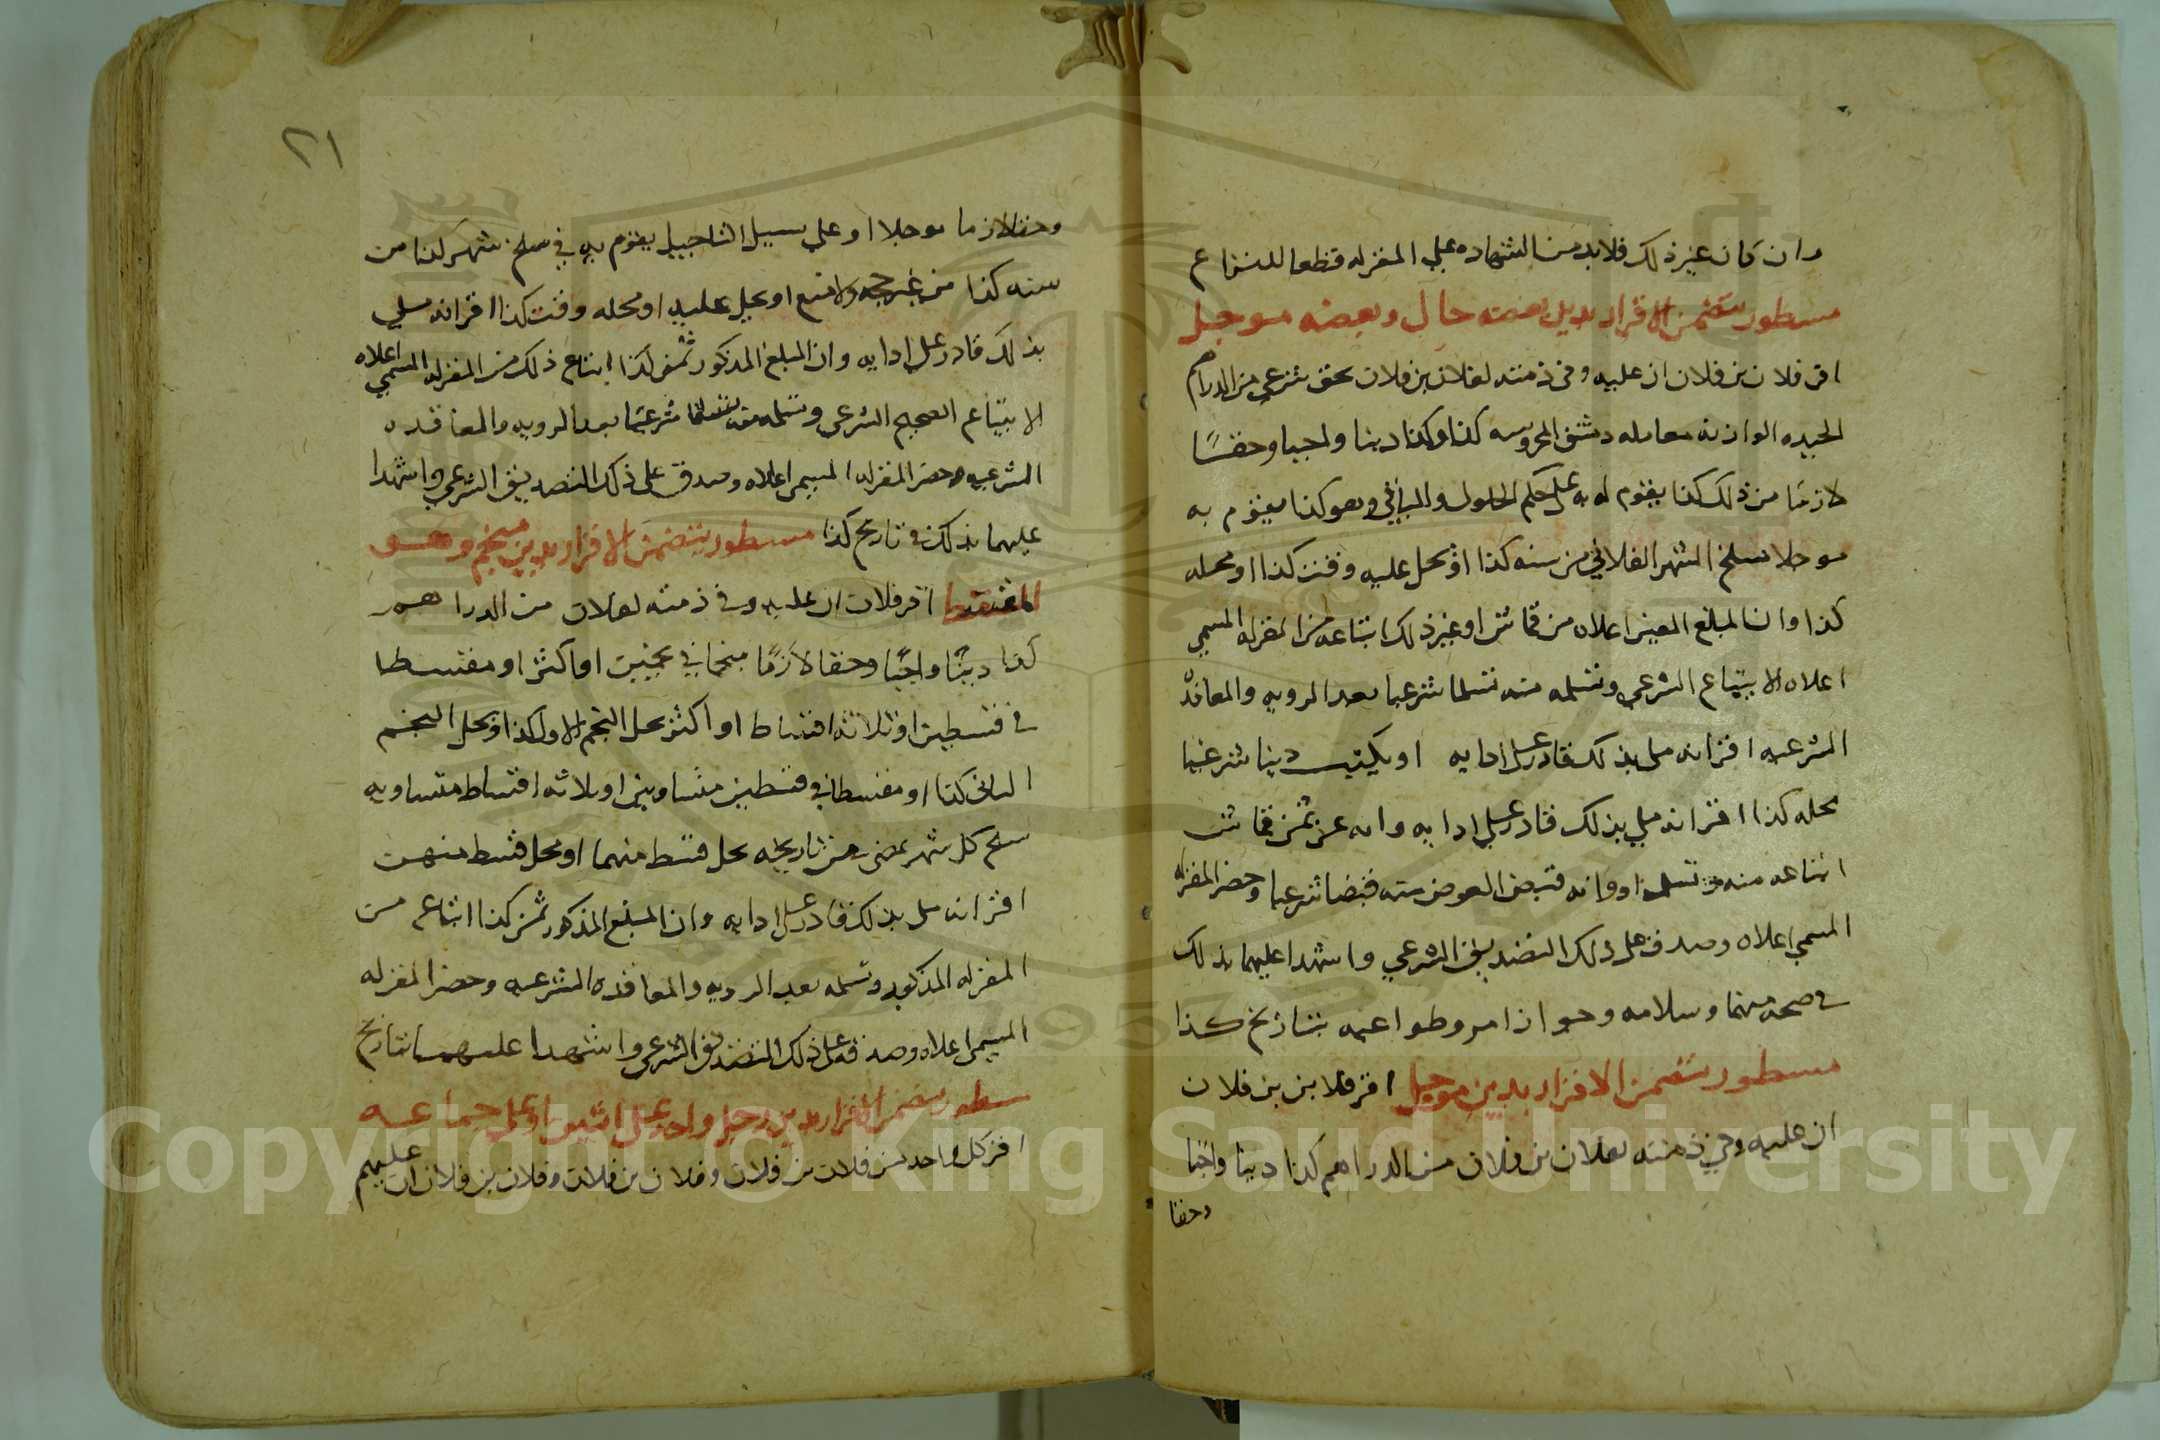 وان كان غير ذلك فلابد من الشهاده على المقر له قطعا للنزاع
مسطور يتضمن الاقرار بدين بعضه حال وبعضه موجل
اقر فلان بن فلان ان عليه وفي ذمته لفلان بن فلان بحق شرعي من الدراهم
الجيده الوازنه معامله دمشق المحروسه كذا وكذا دينا واجبا وحقا
لازما من ذلك كذا يقوم له به على حكم الحلول والباقي وهو كذا يقوم به
موجلا سلخ الشهر الفلاني من سنه كذا او يحل عليه وقت كذا او محله
كذا وان المبلغ المعين اعلاه من قماش او غير ذلك ابتاعه من المقر له المسمي
اعلاه الابتياع الشرعي وتسلمه منه تسلما شرعيا بعد الرويه والمعاقده
الشرعيه اقر انه ملي بذلك قادر على ادايه او يكتب دينا شرعيا
محله كذا اقر انه ملي بذلك قادر على ادايه وانه عن ثمن قماش
ابتاعه منه وتسلمه او وانه قبض العوض منه قبضا شرعيا وحضر المقر له
المسمي اعلاه وصدق على ذلك التصديق الشرعي واشهدا عليهما بذلك
في صحه منهما وسلامه وجواز امر وطواعيه بتاريخ كذا
مسطور يتضمن الاقرار بدين موجل اقر فلان بن فلان
ان عليه وفي ذمته لفلان بن فلان من الدراهم كذا دينا واجبا
وحقا
٢١
وحقا لازما موجلا او على سبيل التاجيل يقوم به في سلخ شهر كذا من
سنه كذا من غير حجه ولا منع او يحل عليه او محله وقت كذا اقر انه ملي
بذلك قادر على ادايه وان المبلغ المذكور ثمن كذا ابتاع ذلك من المقر له المسمي اعلاه
الابتياع الصحيح الشرعي وتسلمه منه تسلما شرعيا بعد الرويه والمعاقده
الشرعيه وحضر المقر له المسمى اعلاه وصدق على ذلك التصديق الشرعي واشهدا
عليهما بذلك في تاريخ كذا مسطور يتضمن الاقرار بدين منجم وهو
المقسط اقر فلان ان عليه وفي ذمته لفلان من الدراهم
كذا دينا واجبا وحقا لازما منجما في نجمين او اكثر او مقسطا
في قسطين او ثلاثه اقساط او اكثر يحل النجم الاول كذا ويحل النجم
الثاني كذا او مقسطا في قسطين متساويين او ثلاثه اقساط متساويه
سلخ كل شهر يمضي من تاريخه يحل قسط منهما او يحل قسط منهن
اقر انه ملي بذلك قادر على ادايه وان المبلغ المذكور ثمن كذا ابتاع من
المقر له المذكور وتسلمه بعد الرويه والمعاقده الشرعيه وحضر المقر له
المسمى اعلاه وصدقه على ذلك التصديق الشرعي واشهدا عليهما بتاريخ
مسطور يتضمن الاقرار بدين رجل واحد على اثنين او على جماعه
اقر كل واحد من فلان بن فلان وفلان بن فلان وفلان بن فلان ان عليهم
Copyright © King Saud University
1957